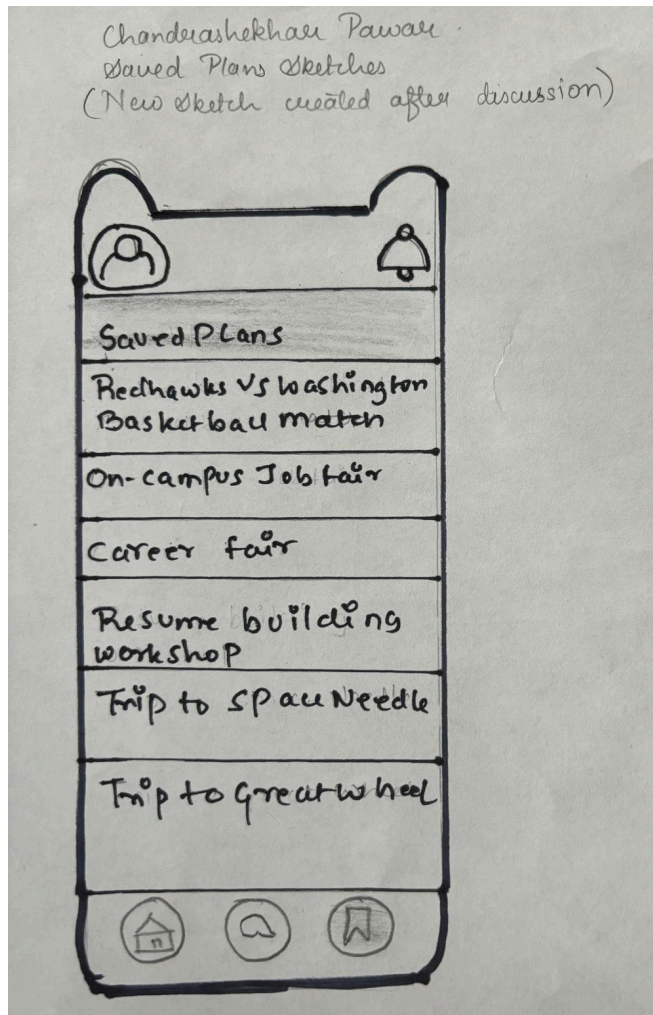 Chandrashekhar Pawar.
Saved Plans Sketches
(New Sketch created after discussion)
Saved Plans
Redhawks vs Washington
Basketball match
On-campus Job fair
Career fair
Resume building
workshop
Trip to Space Needle
Trip to Great wheel